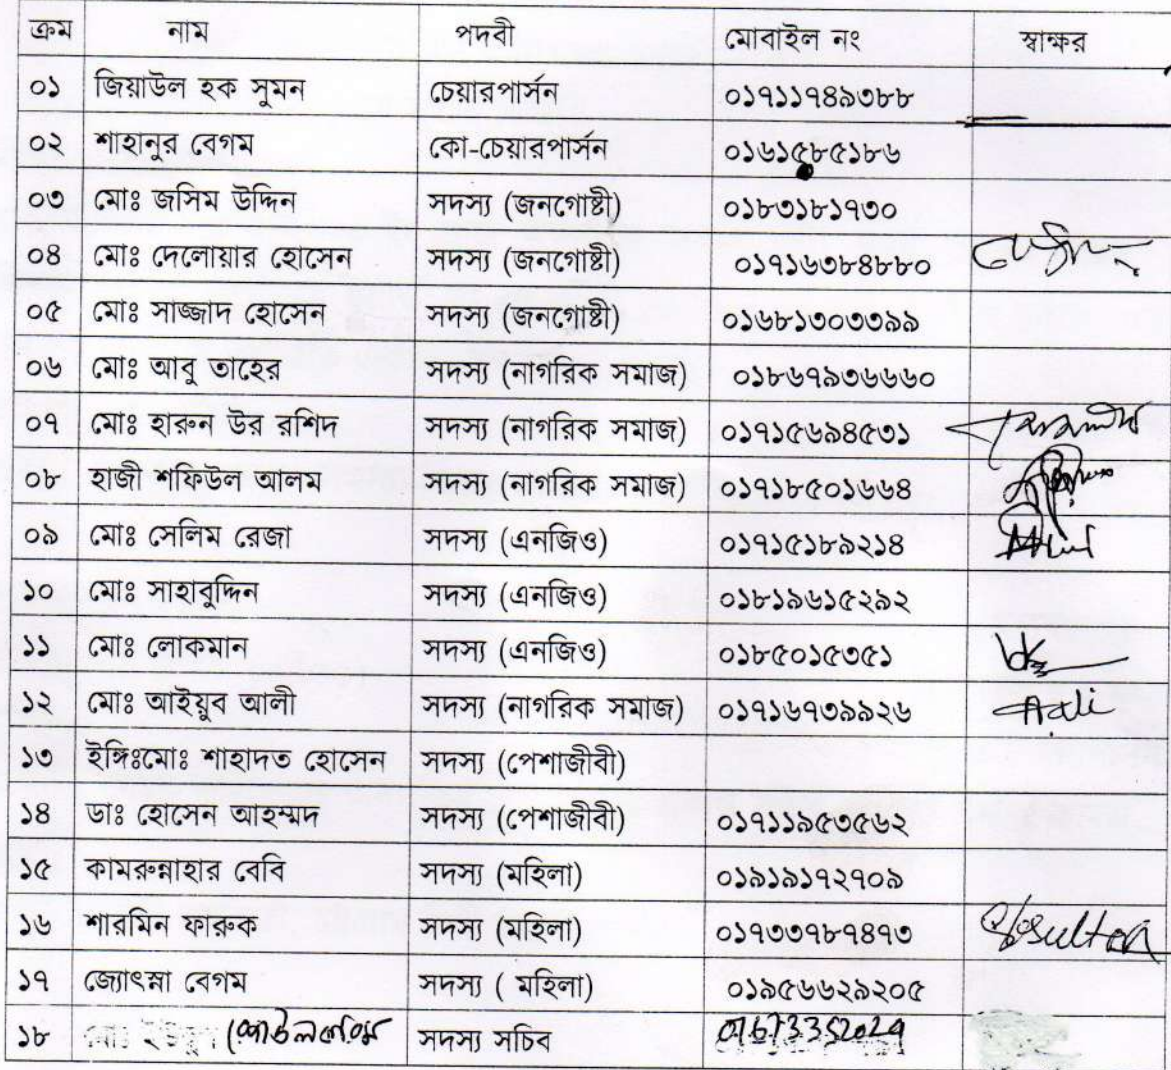 ক্রম নাম পদবী মোবাইল নং স্বাক্ষর
০১ জিয়াউল হক সুমন চেয়ারপার্সন ০১৭১১৭৪৯৩৮৮
০২ শাহানুর বেগম কো-চেয়ারপার্সন ০১৬১৫৮৫১৮৬
০৩ মোঃ জসিম উদ্দিন সদস্য (জনগোষ্টী) ০১৮৩১৮১৭৩০
০৪ মোঃ দেলোয়ার হোসেন সদস্য (জনগোষ্টী) ০১৭১৬৩৮৪৮৮০
০৫ মোঃ সাজ্জাদ হোসেন সদস্য (জনগোষ্টী) ০১৬৮১৩০৩৩৯৯
০৬ মোঃ আবু তাহের সদস্য (নাগরিক সমাজ) ০১৮৬৭৯৩৬৬৬০
০৭ মোঃ হারুন উর রশিদ সদস্য (নাগরিক সমাজ) ০১৭১৫৬৯৪৫৩১
০৮ হাজী শফিউল আলম সদস্য (নাগরিক সমাজ) ০১৭১৮৫০১৬৬৪
০৯ মোঃ সেলিম রেজা সদস্য (এনজিও) ০১৭১৫১৮৯২১৪
১০ মোঃ সাহাবুদ্দিন সদস্য (এনজিও) ০১৮১৯৬১৫২৯২
১১ মোঃ লোকমান সদস্য (এনজিও) ০১৮৫০১৫৩৫১
১২ মোঃ আইয়ুব আলী সদস্য (নাগরিক সমাজ) ০১৭১৬৭৩৯৯২৬ Aali
১৩ ইঙ্গিঃমোঃ শাহাদত হোসেন সদস্য (পেশাজীবী)
১৪ ডাঃ হোসেন আহম্মদ সদস্য (পেশাজীবী) ০১৭১১৯৫৩৫৬২
১৫ কামরুন্নাহার বেবি সদস্য (মহিলা) ০১৯১৯১৭২৭০৯
১৬ শারমিন ফারুক সদস্য (মহিলা) ০১৭৩৩৭৮৭৪৭৩
১৭ জ্যোৎস্না বেগম সদস্য ( মহিলা) ০১৯৫৬৬২৯২০৫
১৮ সদস্য সচিব